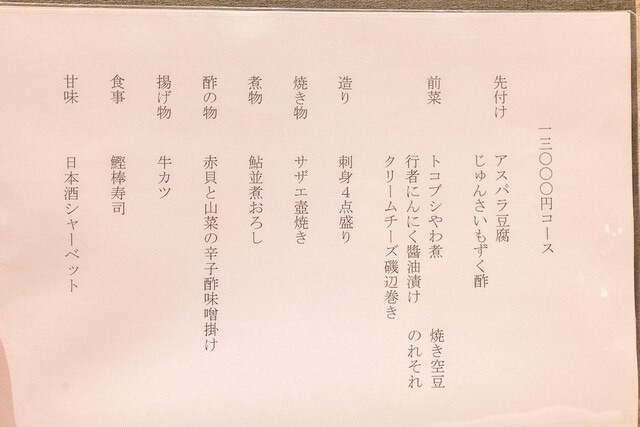 一三〇〇〇円コース
先付け　アスパラ豆腐
じゅんさいもずく酢
前菜　トコブシやわ煮　焼き空豆
行者にんにく醬油漬け　のれそれ
クリームチーズ磯辺巻き
造り　刺身４点盛り
焼き物　サザエ壺焼き
煮物　鮎並煮おろし
酢の物　赤貝と山菜の辛子酢味噌掛け
揚げ物　牛カツ
食事　鰹棒寿司
甘味　日本酒シャーベット